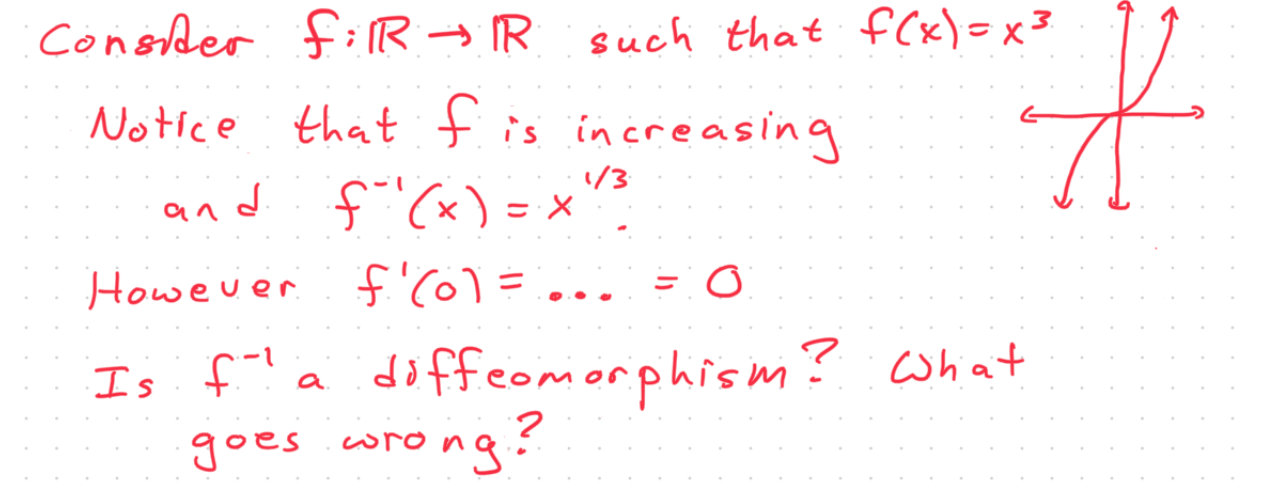 Consider f:ℝ→ℝ such that f(x)=x³
Notice that f is increasing
and f⁻¹(x) = x^{1/3}.
However f'(0) = ... = 0
Is f⁻¹ a diffeomorphism? What
goes wrong?